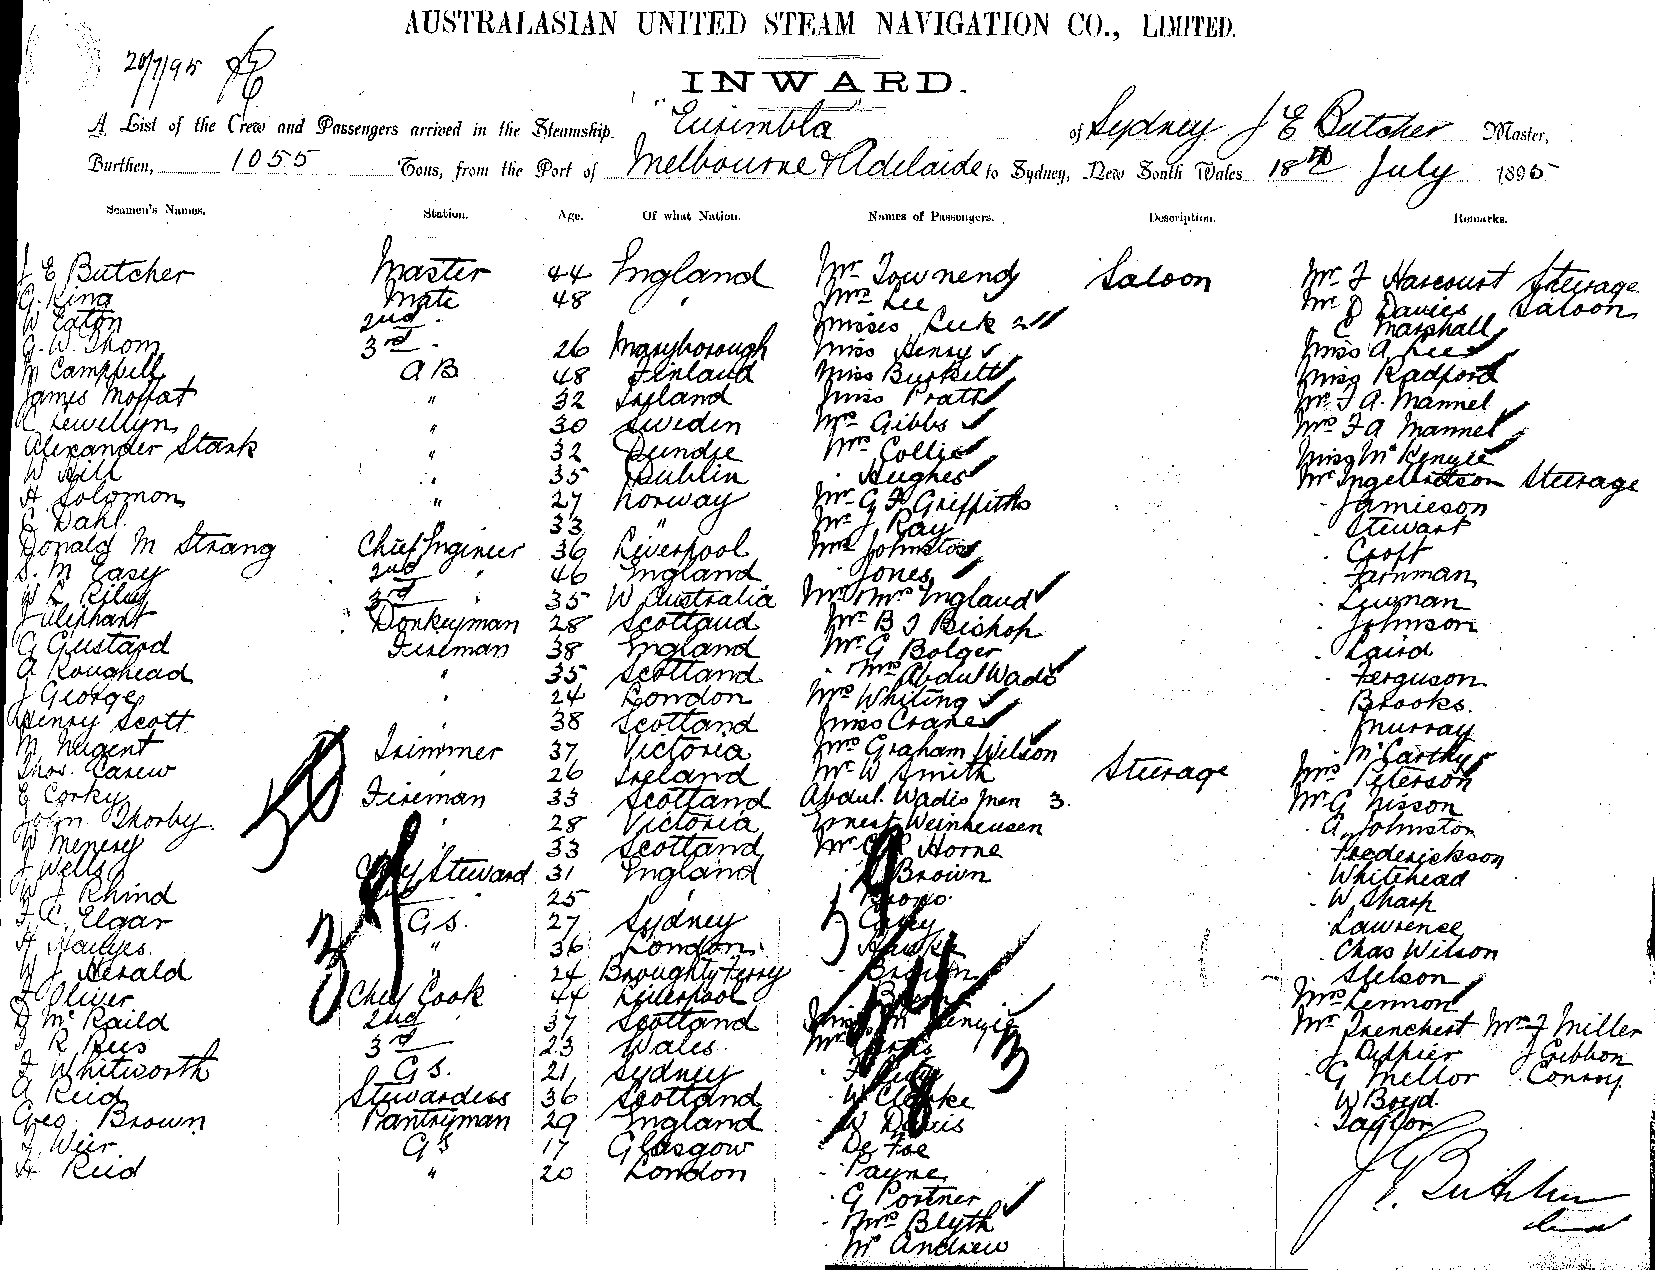 AUSTRALASIAN UNITED STEAM NAVIGATION CO., LIMITED.
20/7/95
INWARD.
A List of the Crew and Passengers arrived in the Steamship "Eurimbla" of Sydney J E Butcher Master,
Burthen, 1055 Tons, from the Port of Melbourne & Adelaide to Sydney, New South Wales 18th July 1895
Seamen's Names. Station. Age. Of what Nation. Names of Passengers. Description. Remarks.
J E Butcher Master 44 England Mr Townend Saloon Mr F Harcourt Steerage
G. King Mate 48 " Mrs Lee Mr D Davies Saloon
W Eaton 2nd " Misses Leek 2 " C Marshall
G. W. Thom 3rd " 26 Maryborough Miss Henry Miss A Lee
M Campbell AB 48 Finland Miss Burkett Miss Radford
James Moffat " 32 Ireland Miss Pratt Mr F A. Mannel
Lewellyn " 30 Sweden Mrs Gibbs Mrs F A Mannel
Alexander Stark " 32 Dundee Mrs Collie Miss McKenzie
W Hill " 35 Dublin " Hughes Mr Ingebretson Steerage
A Solomon " 27 Norway Mr G F Griffiths " Jamieson
Dahl 33 " Mr J Ray " Stewart
Donald M Strang Chief Engineer 36 Liverpool Mrs Johnston " Croft
S. M Easy 2nd " 46 England " Jones " Farnman
W L Riley 3rd " 35 W Australia Mr & Mrs England " Lewnan
J Oliphant Donkeyman 28 Scotland Mr B T Bishop " Johnson
G Gustard Fireman 38 England Mr G Bolger " Laird
A Roughead " 35 Scotland " Mrs Abdul Wade " Ferguson
J George " 24 London Mrs Whiting " Brooks
Henry Scott " 38 Scotland Miss Crane " Murray
M Nugent Trimmer 37 Victoria Mrs Graham Wilson " McCarthy
Thos. Carew " 26 Ireland Mr W Smith Steerage Mrs Peterson
E Corky Fireman 33 Scotland Abdul Wadis Men 3. Mr G Nisson
John Thorby " 28 Victoria Ernest Weinheusen " A Johnston
W Menery " 33 Scotland Mr Horne " Frederickson
J Wells Chief Steward 31 England " Brown " Whitehead
W J Rhind 25 " " W Sharp
F. C. Elgar G S. 27 Sydney " Lawrence
A Hailyes " 36 London " Chas Wilson
W J Herald " 24 Broughty Ferry " Brown " Nelson
J Oliver Chief Cook 44 Liverpool " Mrs Lennon
D McKaild 2nd 37 Scotland Mr Trenchert Mr J Miller
J R Rees 3rd 23 Wales " J Duffier J Gibbon
J Whitworth G S. 21 Sydney " G Mellor " Conroy
A Reid Stewardess 36 Scotland " W Clarke " W Boyd
Geo Brown Pantryman 29 England " W Davis " Taylor
J Weir G S 17 Glasgow " De Foe
A Reid " 20 London " Payne
" G Portner
" Mrs Blyth
" Mr Andrew
J E Butcher